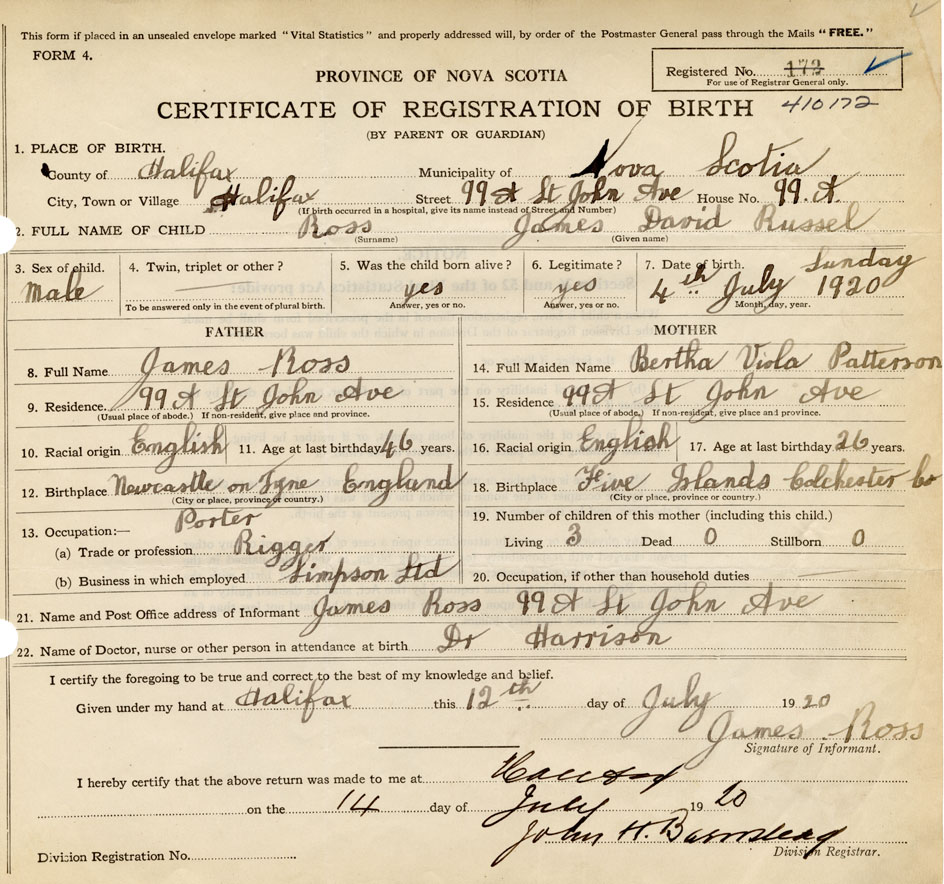 This form if placed in an unsealed envelope marked "Vital Statistics" and properly addressed will, by order of the Postmaster General pass through the Mails "FREE."
FORM 4.
Registered No. 172
For use of Registrar General only.
PROVINCE OF NOVA SCOTIA
CERTIFICATE OF REGISTRATION OF BIRTH 410172
(BY PARENT OR GUARDIAN)
1. PLACE OF BIRTH.
County of Halifax Municipality of Nova Scotia
City, Town or Village Halifax Street 99A St John Ave House No. 99.A
(If birth occurred in a hospital, give its name instead of Street and Number)
2. FULL NAME OF CHILD Ross James David Russel
(Surname) (Given name)
3. Sex of child. 4. Twin, triplet or other? 5. Was the child born alive? 6. Legitimate? 7. Date of birth. Sunday
Male yes yes 4th July 1920
To be answered only in the event of plural birth. Answer, yes or no. Answer, yes or no. Month, day, year.
FATHER MOTHER
8. Full Name James Ross 14. Full Maiden Name Bertha Viola Patterson
9. Residence. 99A St John Ave 15. Residence 99A St John Ave
(Usual place of abode.) If non-resident, give place and province. (Usual place of abode,) If non-resident, give place and province.
10. Racial origin English 11. Age at last birthday 46 years. 16. Racial origin English 17. Age at last birthday 26 years.
12. Birthplace Newcastle on Tyne England 18. Birthplace Five Islands Colchester Co
(City or place, province or country.) (City or place, province or country.)
13. Occupation:— Porter 19. Number of children of this mother (including this child.)
(a) Trade or profession Rigger Living 3 Dead 0 Stillborn 0
(b) Business in which employed Simpson Ltd 20. Occupation, if other than household duties
21. Name and Post Office address of Informant James Ross 99A St John Ave
22. Name of Doctor, nurse or other person in attendance at birth Dr Harrison
I certify the foregoing to be true and correct to the best of my knowledge and belief.
Given under my hand at Halifax this 12th day of July 1920
James Ross
Signature of Informant.
I hereby certify that the above return was made to me at Halifax
on the 14 day of July 1920
John H. Barnstead
Division Registrar.
Division Registration No.